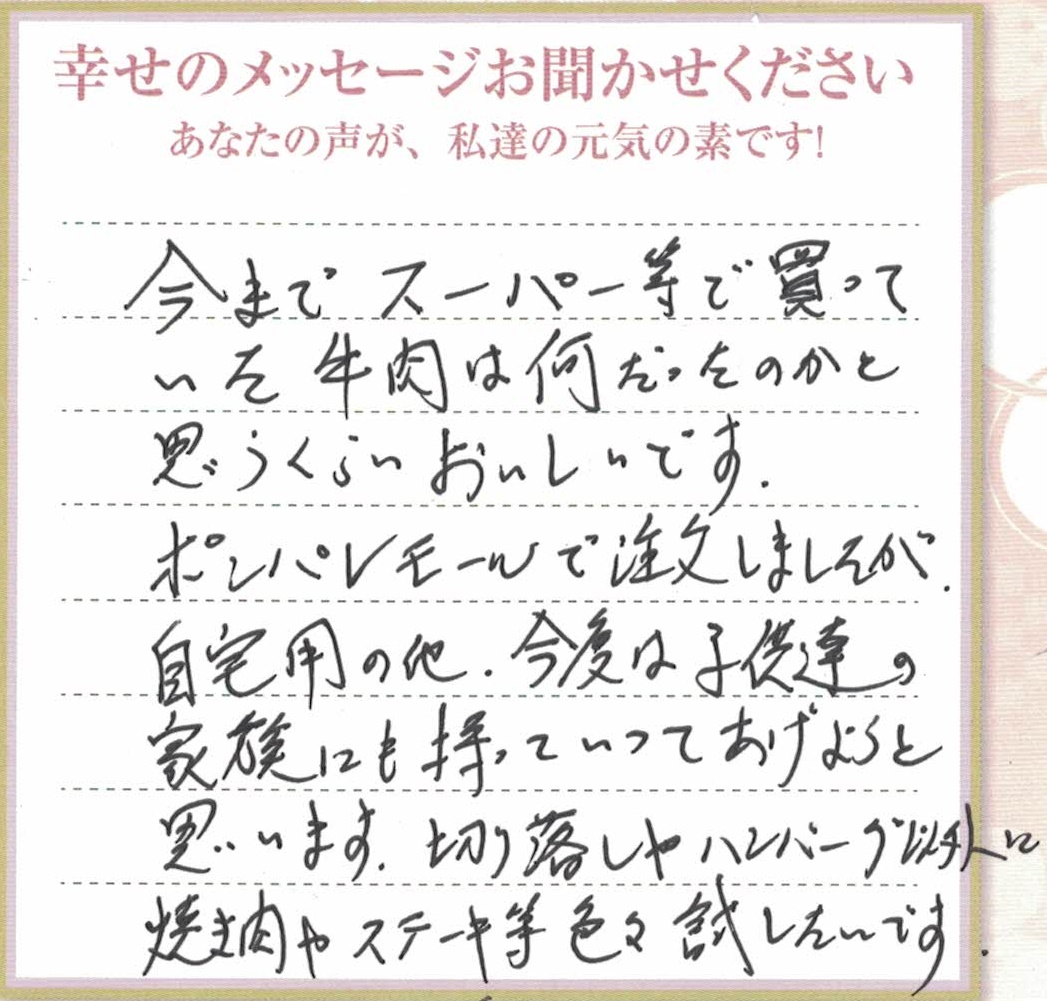 幸せのメッセージお聞かせください
あなたの声が、私達の元気の素です!
今まで スーパー等で買って
いた 牛肉は何だったのかと
思うくらい おいしいです.
ポンパレモールで注文しましたが.
自宅用の他.今度は子供達の
家族にも持っていってあげようと
思います.切り落しやハンバーグ以外に
焼き肉やステーキ等色々試したいです.